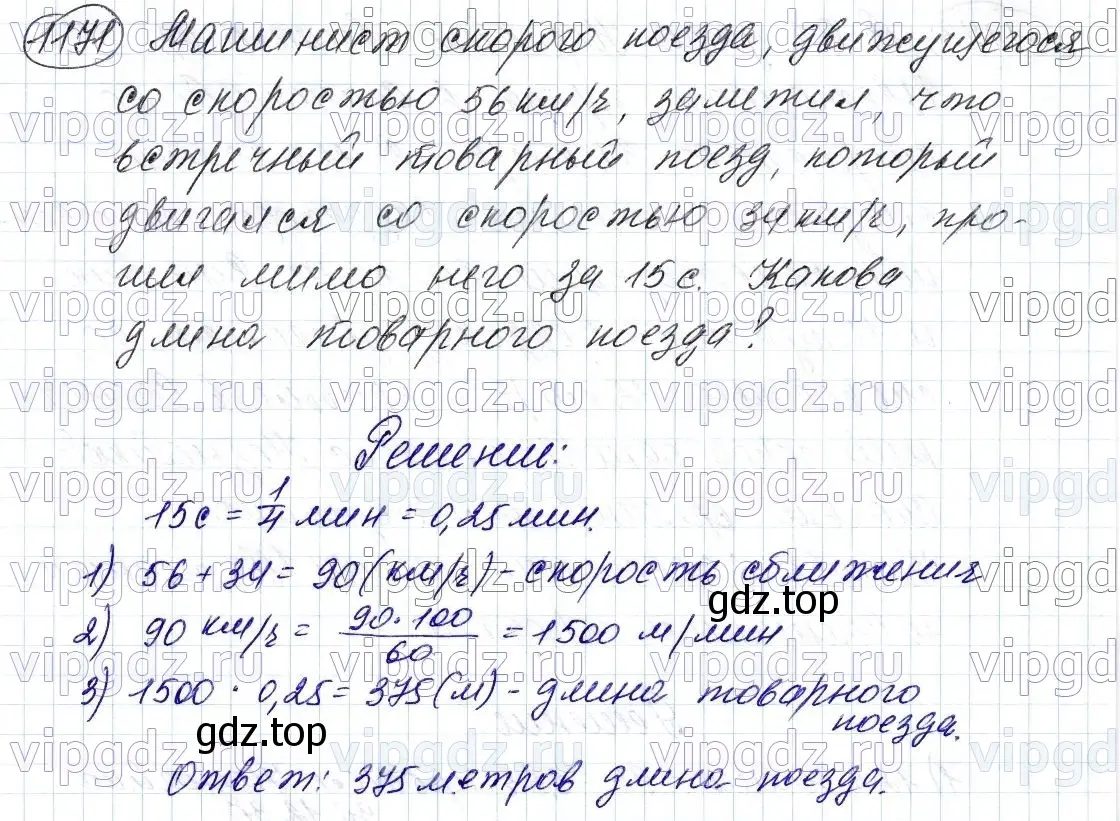 1171 Машинист скорого поезда, движущегося
со скоростью 56 км/ч, заметил, что
встречный товарный поезд, который
двигался со скоростью 34 км/ч, про-
шел мимо него за 15 с. Какова
длина товарного поезда?
Решение:
15с = 1/4 мин = 0,25 мин.
1) 56 + 34 = 90 (км/ч) - скорость сближения
gdz.top
2) 90 км/ч = 90·100/60 = 1500 м/мин
3) 1500 · 0,25 = 375 (м) - длина товарного
поезда.
gdz.top
Ответ: 375 метров длина поезда.
vipgdz.ru